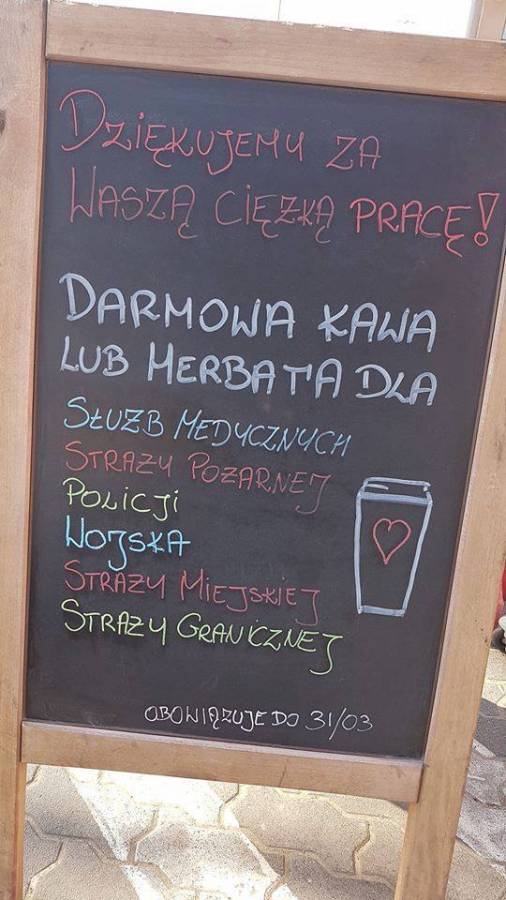 DZIĘKUJEMY ZA
WASZĄ CIĘŻKĄ PRACĘ!
DARMOWA KAWA
LUB HERBATA DLA
SŁUŻB MEDYCZNYCH
STRAŻY POŻARNEJ
POLICJI
WOJSKA
STRAŻY MIEJSKIEJ
STRAŻY GRANICZNEJ
OBOWIĄZUJE DO 31/03